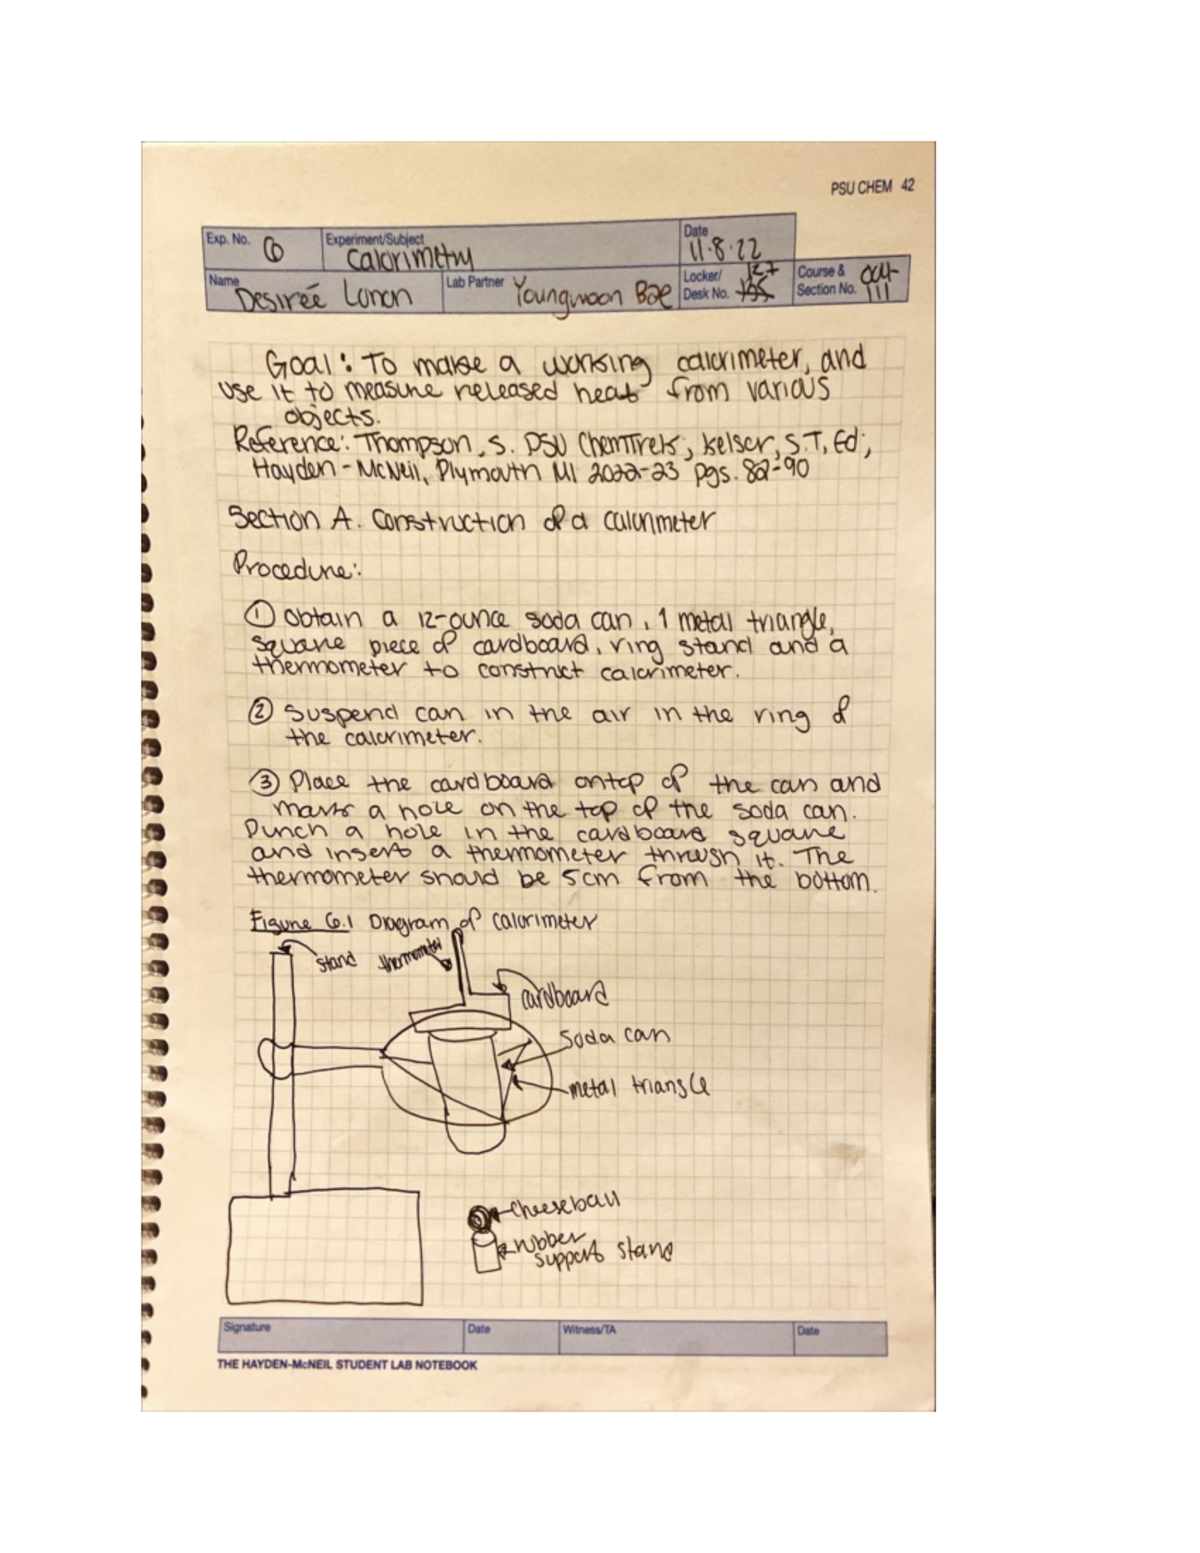 PSU CHEM 42
Exp. No. 6 Experiment/Subject Calorimetry Date 11.8.22
Name Desireé Lonon Lab Partner Youngwoon Bae Locker/Desk No. 127 Course & Section No. 111
Goal: To make a working calorimeter, and
use it to measure released heat from various
objects.
Reference: Thompson, S. PSU ChemTreks; Kelser, S.T, Ed;
Hayden-McNeil, Plymouth MI 2022-23 pgs. 82-90
Section A. Construction of a calorimeter
Procedure:
① Obtain a 12-ounce soda can, 1 metal triangle,
square piece of cardboard, ring stand and a
thermometer to construct calorimeter.
② Suspend can in the air in the ring of
the calorimeter.
③ Place the cardboard ontop of the can and
mark a hole on the top of the soda can.
Punch a hole in the cardboard square
and insert a thermometer through it. The
thermometer should be 5cm from the bottom.
Figure 6.1 Diagram of calorimeter
stand thermometer
cardboard
soda can
metal triangle
cheeseball
rubber
support stand
Signature Date Witness/TA Date
THE HAYDEN-McNEIL STUDENT LAB NOTEBOOK